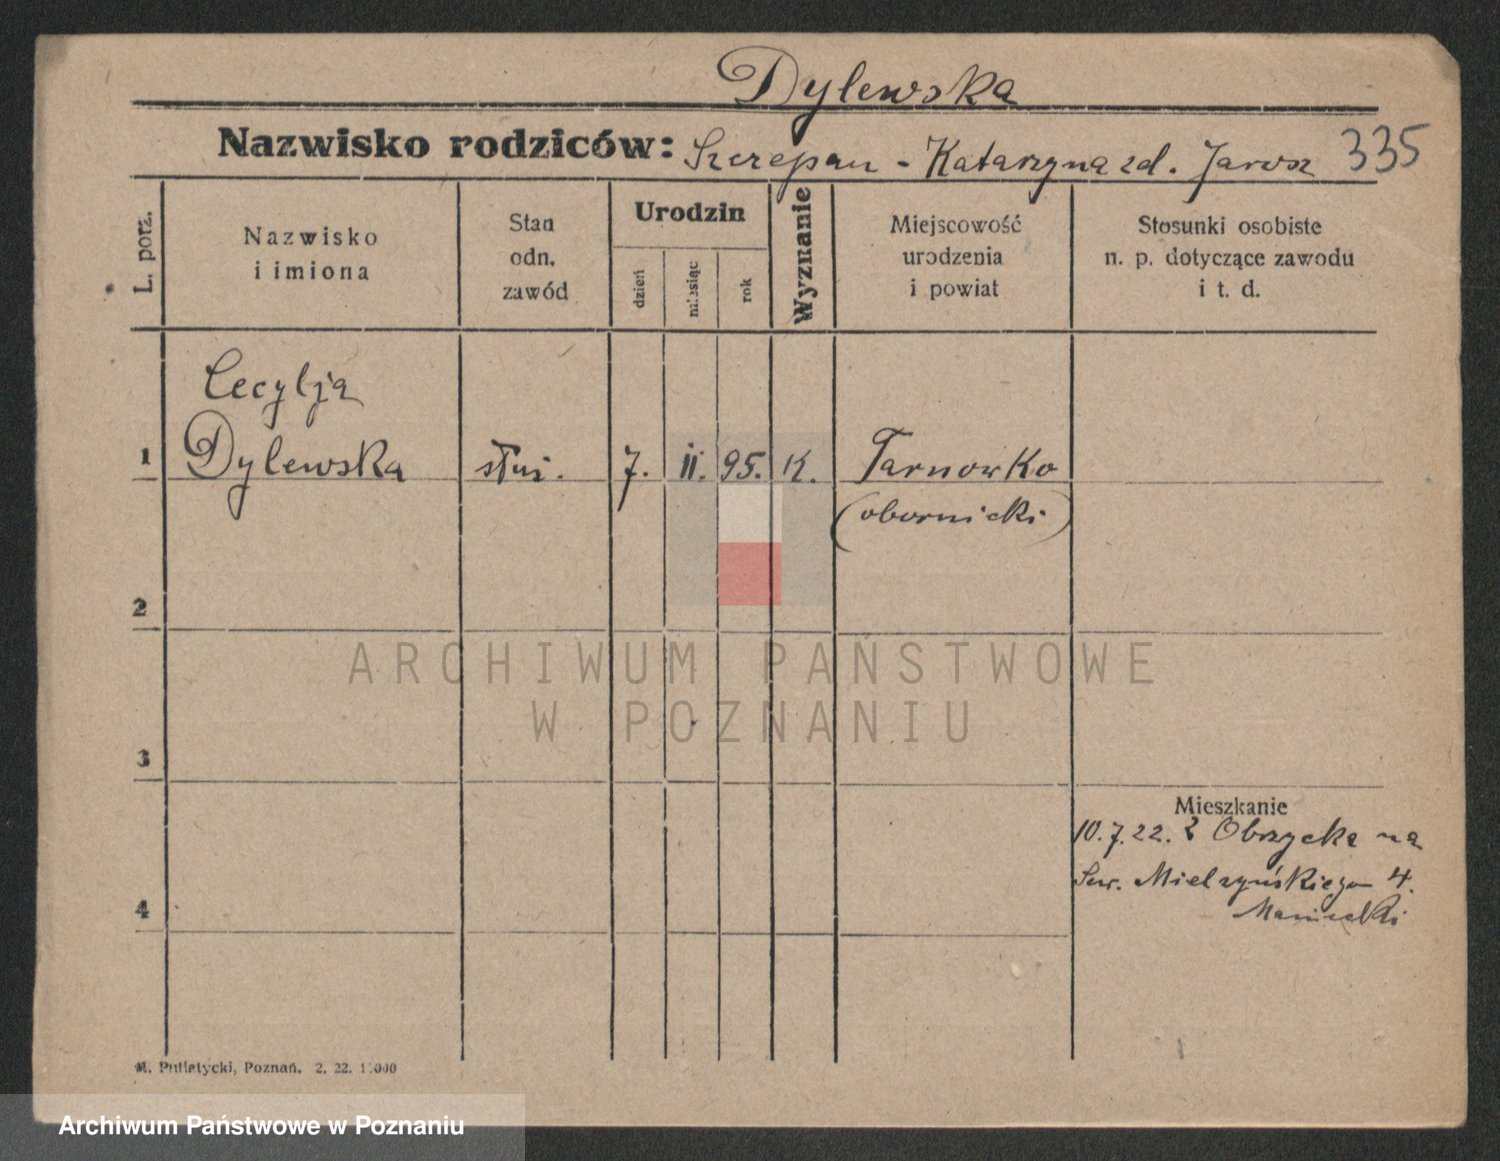 Dylewska
Nazwisko rodziców: Szczepan - Katarzyna zd. Jarosz 335
L. porz.
Nazwisko
i imiona
Stan
odn.
zawód
Urodzin
dzień
miesiąc
rok
Wyznanie
Miejscowość
urodzenia
i powiat
Stosunki osobiste
n. p. dotyczące zawodu
i t. d.
Cecylja
1 Dylewska służ. 7. II. 95. K. Tarnowko
(obornicki)
2
ARCHIWUM PAŃSTWOWE
W POZNANIU
3
Mieszkanie
10.7.22. z Obrzycka na
Sew. Mielżyńskiego 4.
4
M. Putiatycki, Poznań. 2. 22.
Archiwum Państwowe w Poznaniu